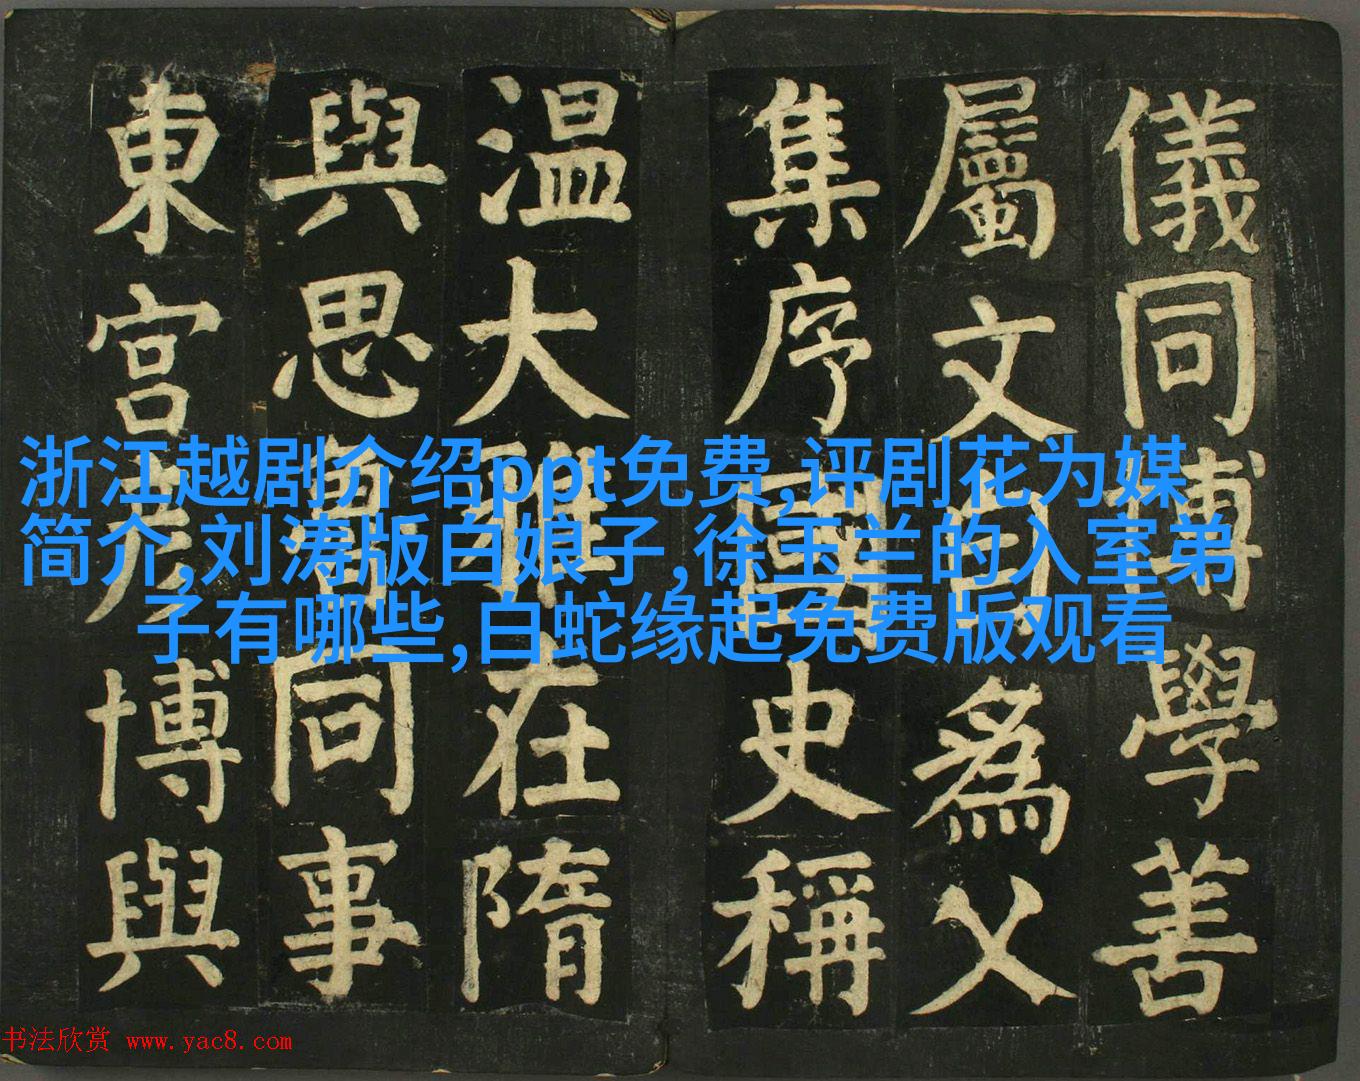 儀同博學善
屬文為父
集序國史稱
温大雅在隋
與思同事
東宮彥博與
浙江越剧介绍ppt免费,评剧花为媒
简介,刘涛版白娘子,徐玉兰的入室弟
子有哪些,白蛇缘起免费版观看
书法欣赏 www.yac8.com